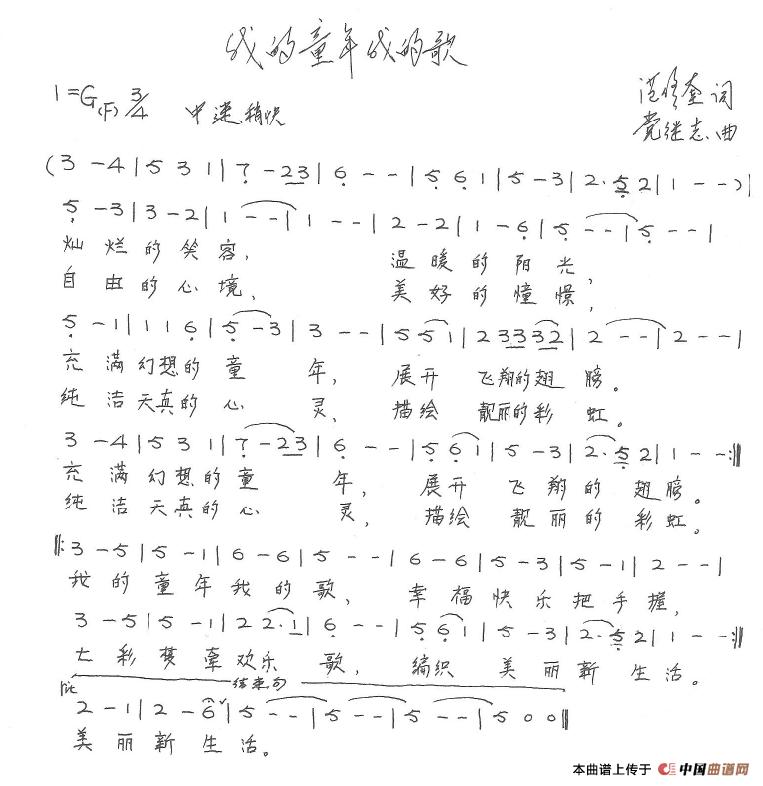 我的童年我的歌
1=G(F) 3/4 中速稍快
范修奎 词
党继志 曲
(3 - 4 | 5 3 1 | 7̣ - 2 3 | 6̣ - - | 5̣ 6̣ 1 | 5 - 3 | 2· 5̣ 2 | 1 - - ) |
5̣ - 3 | 3 - 2 | 1 - - | 1 - - | 2 - 2 | 1 - 6̣ | 5̣ - - | 5̣ - - |
灿烂的笑容, 温暖的阳光,
自由的心境, 美好的憧憬,
5̣ - 1 | 1 1 6̣ | 5̣ - 3 | 3 - - | 5 5 1 | 2 3 3 3 2 | 2 - - | 2 - - |
充满幻想的童年, 展开飞翔的翅膀。
纯洁天真的心灵, 描绘靓丽的彩虹。
3 - 4 | 5 3 1 | 7̣ - 2 3 | 6̣ - - | 5̣ 6̣ 1 | 5 - 3 | 2· 5̣ 2 | 1 - - :‖
充满幻想的童年, 展开飞翔的翅膀。
纯洁天真的心灵, 描绘靓丽的彩虹。
‖: 3 - 5 | 5 - 1 | 6 - 6 | 5 - - | 6 - 6 | 5 - 3 | 5 - 1 | 2 - - |
我的童年我的歌, 幸福快乐把手握,
3 - 5 | 5 - 1 | 2 2· 1 | 6̣ - - | 5̣ 6̣ 1 | 5 - 3 | 2· 5̣ 2 | 1 - - :‖
七彩梦牵欢乐歌, 编织美丽新生活。
rit 结束句
2 - 1 | 2 - 6̣ | 5 - - | 5 - - | 5 - - | 5 0 0 ‖
美丽新生活。
本曲谱上传于 中国曲谱网